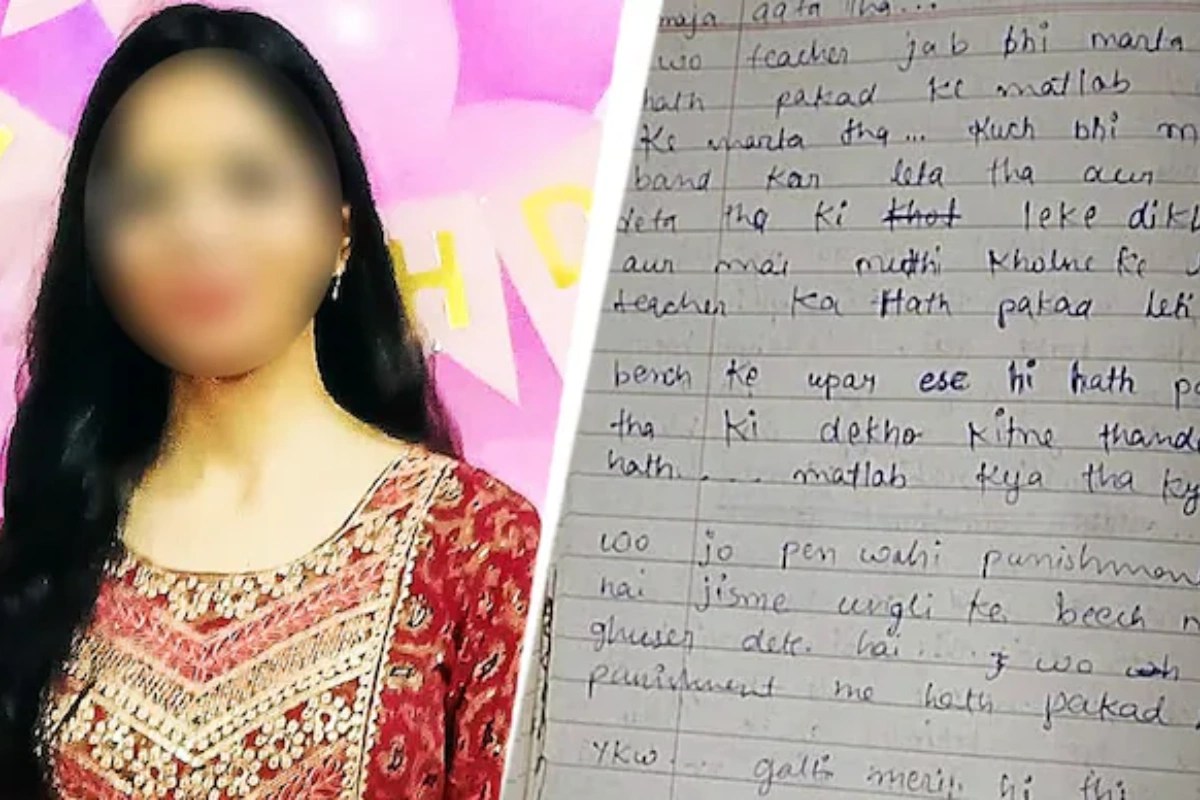 H D
maja aata tha...
wo teacher jab bhi marta
hath pakad ke matlab
ke marta tha... Kuch bhi
band kar leta tha aur
deta tha ki khot leke
aur mai mudhi kholne ke
teacher ka Hath pakad leti
bench ke upar ese hi hath
tha ki dekho kitne
hath.... matlab kya tha
woo jo pen wahi
hai jisme ungli ke beech
ghuser dete hai.... wo
punishment me hath pakad
YKW... galti meri hi thi